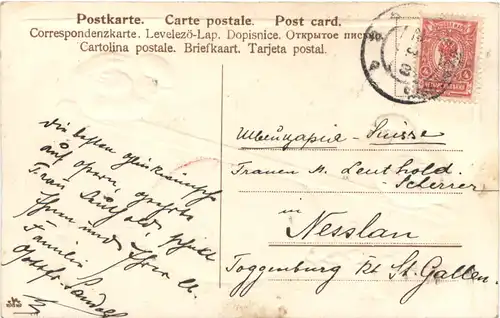 Postkarte. Carte postale. Post card.
Correspondenzkarte. Levelező-Lap. Dopisnice. Открытое письмо
Cartolina postale. Briefkaart. Tarjeta postal.
Die besten
auf Ostern, geehrte
Frau Leuthold,
Ihnen und Ihrer l.
Familie
Gottfr.
Швейцарія - Suisse
Frauen A. Leuthold-
Scherrer
in
Nesslau
Toggenburg Kt St. Gallen.